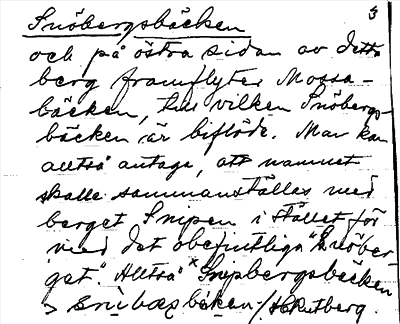 Snöbergsbäcken 3
och på östra sidan av detta
berg framflyter Mossa-
bäcken, till vilken Snöbergs-
bäcken är biflöde. Man kan
alltså antaga, att namnet
skalle sammanställes med
berget Snipen i stället för
med det obefintliga "Snöber-
get". Alltså *Snipbergsbäcken
> snibæs bäkan